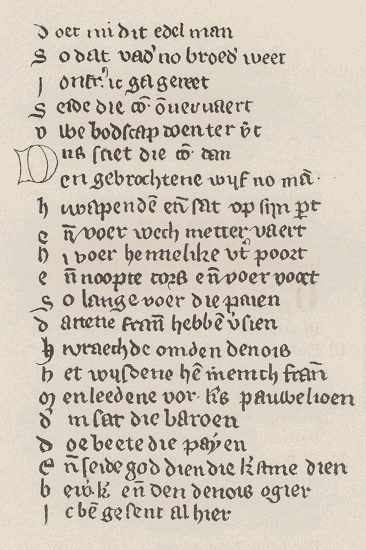 D oet mi dit edel man
S o dat vad' no broed' weet
I ontf'ic ga gereet
S eide die co͞. onververt
v we bodscap doen ter v̾t
D us sciet die co͞. dan
en gebrochtene wijf no ma͞.
h i wapende͞ en͞ sat op sijn p̲t
e n͞ voer wech metter vaert
h i voer hemelike vt͛ poort
e n͞ noopte tors en͞ voer voert
S o lange voer die paien
d at tene fran͞ hebbe͞ v̾sien
h i vraechde om den denois
h et wijsdene he͞ menich fran͞
M en leedene vor. k̾s pauwelioen
d' in sat die baroen
d oe beete die payen
E n͞ seide god dien die k̾stine dien
b ew. k̾ en͞ den denois ogier
I c be͞ gesent al hier